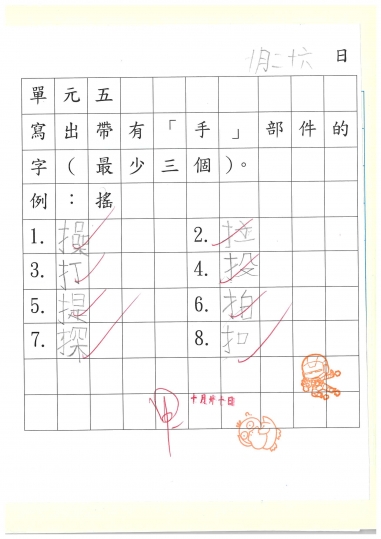 十月二十六 日
單元五
寫出帶有「手」部件的
字(最少三個)。
例：搖
1. 操 2. 拉
3. 打 4. 投
5. 提 6. 拍
7. 探 8. 扣